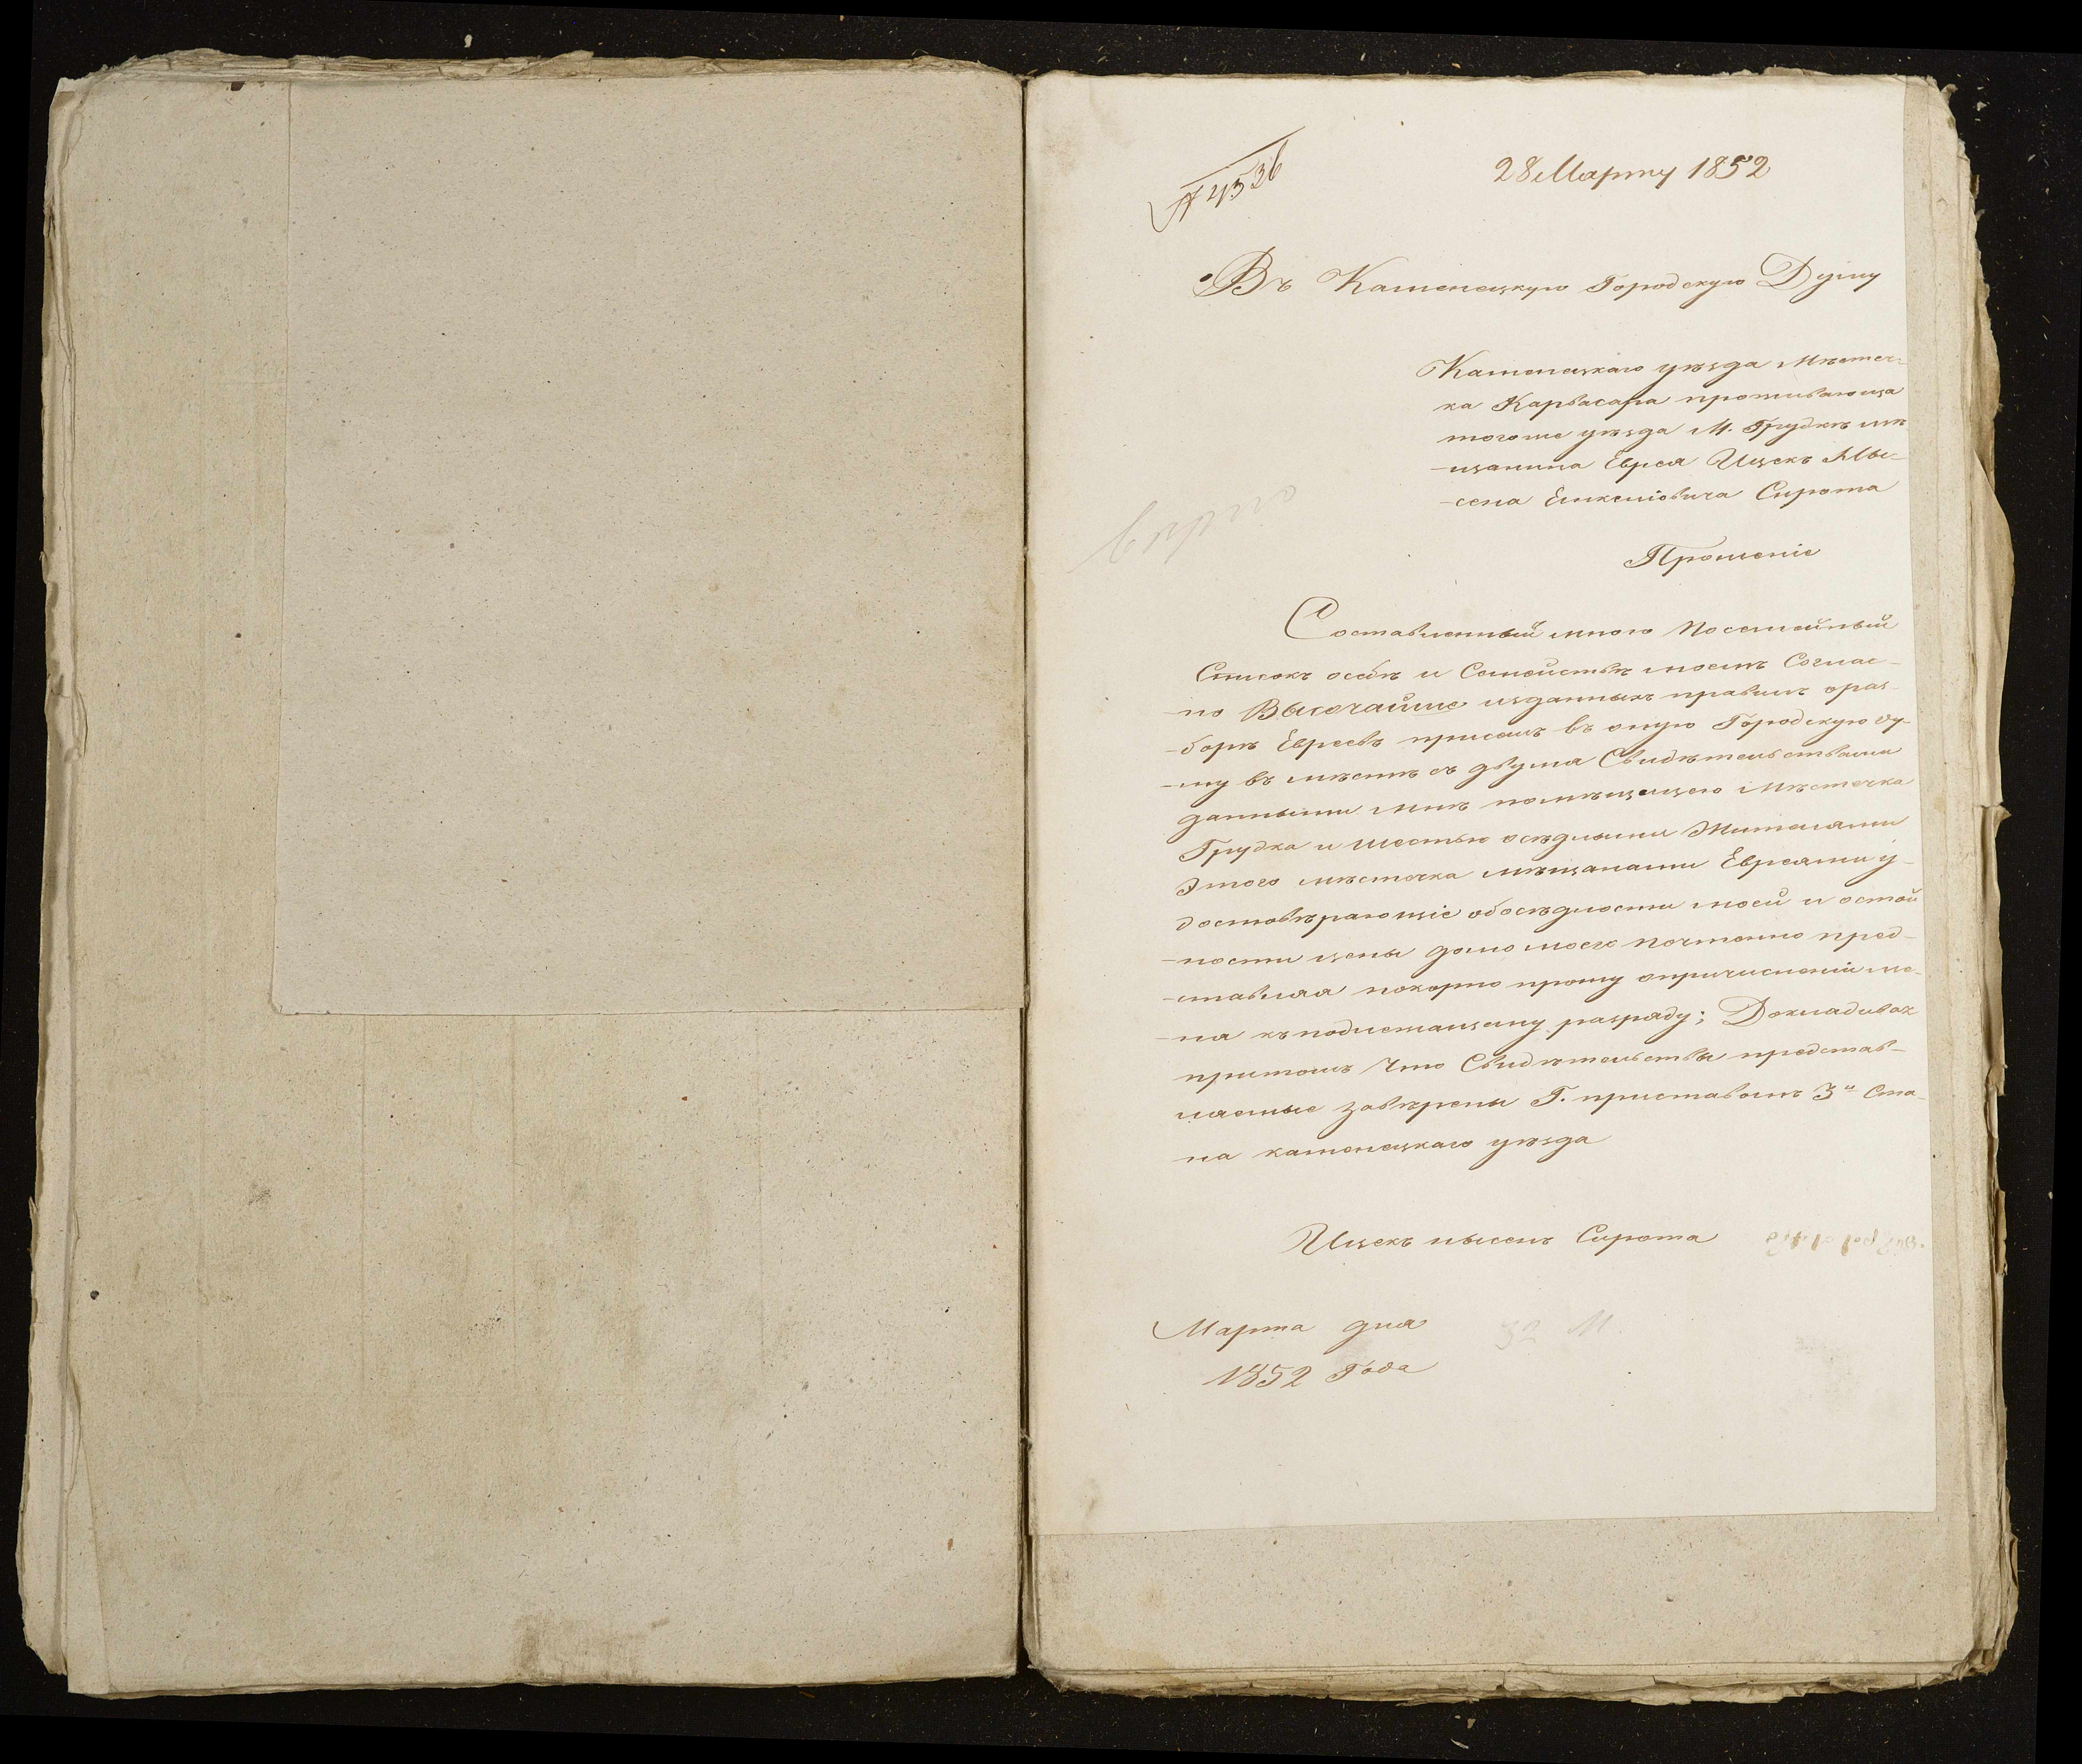 № 4536
28 Марту 1852
Въ Каменецкую Городскую Думу
Каменецкаго уѣзда Мѣстеч-
ка Карвасара проживающа
тогоже уѣзда М. Грудкѣ мѣ
-щанина Еврея Ицекъ
Сирота
Прошеніе
Составленный мною Посемейный
Списокъ о себѣ и Семействѣ моемъ Соглас-
-но Высочайше изданныхъ правилъ ораз-
-борѣ Евреевъ присемъ въ оную Городскую ду-
-му въ мѣстѣ съ двума Свидѣтельствами
данными мнѣ помѣщицею мѣстечка
Грудка и шестью осѣдлыми Жителями
Этого мѣстечка мѣщанами Евреями у-
достовѣрающіе обосѣдлости моей и
-ности цены домо моего почтенно пред-
-ставляя покорно прошу опричисленіи ме-
-на къ разряду; Докладивах
притомъ Что Свидѣтельствы представ-
ляемые завѣрены Г. приставомъ 3й Ста-
на каменецкаго уѣзда
Ицекъ Сирота
Марта дня
1852 Года